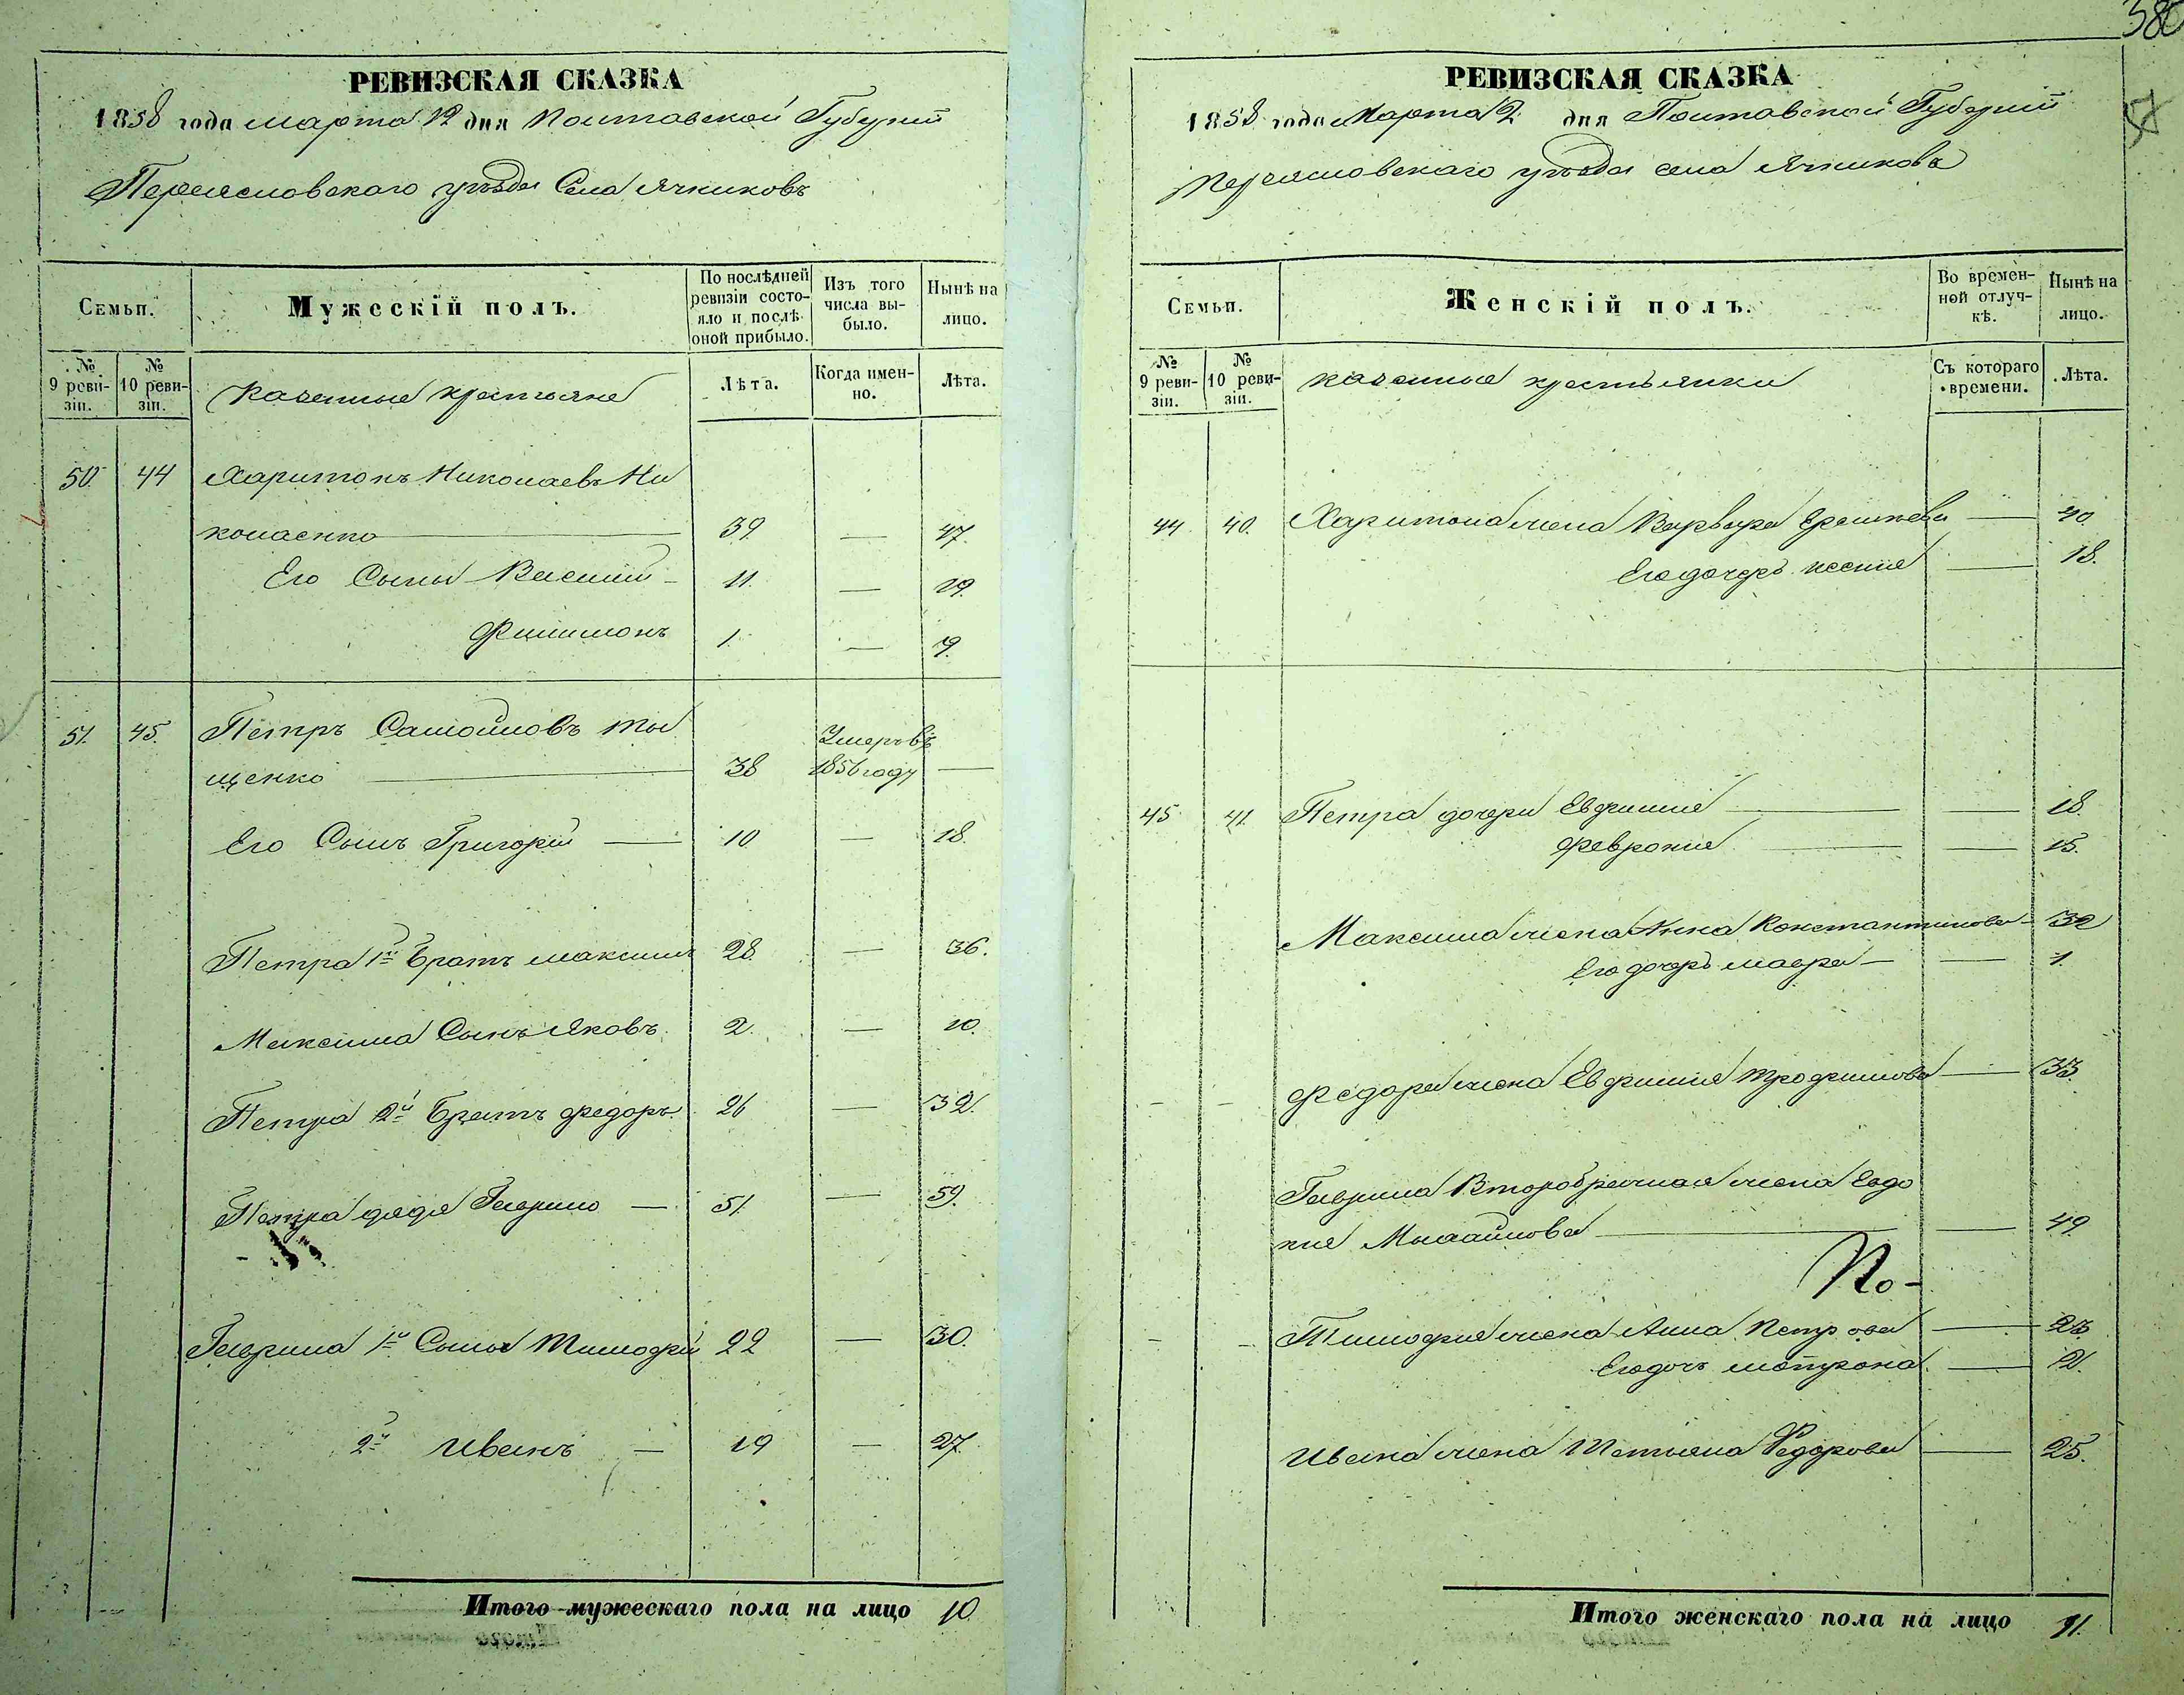 РЕВИЗСКАЯ СКАЗКА
1858 года марта 12 дня Полтавской Губерніи
Переясловскаго уѣзда Села Ячниковъ
Семьи.
Мужескій полъ.
По послѣдней ревизіи состояло и послѣ оной прибыло.
Изъ того числа выбыло.
Нынѣ на лицо.
№ 9 ревизіи.
№ 10 ревизіи.
Казенные крестьяне
Лѣта.
Когда именно.
Лѣта.
50. 44 Харитонъ Николаевъ Ни
колаенко 39 — 47.
Его Сыны Василий 11. — 19.
Филимонъ 1. — 9.
51. 45. Петръ Самойловъ Ты
щенко 38 Умеръ въ 1856 году —
Его Сынъ Григорій 10 — 18.
Петра 1й Братъ Максимъ 28. — 36.
Максима Сынъ Яковъ. 2. — 10.
Петра 2й Братъ Федоръ 26 — 32.
Петра дядя Гаврило — 51. — 59.
Гаврила 1й Сынъ Тимофей 22 — 30.
2й Иванъ — 19 — 27.
Итого мужескаго пола на лицо 10
380
57
РЕВИЗСКАЯ СКАЗКА
1858 года Марта 12 дня Полтавской Губерніи
Переясловскаго уѣзда села Ячниковъ
Семьи.
Женскій полъ.
Во временной отлучкѣ.
Нынѣ на лицо.
№ 9 ревизіи.
№ 10 ревизіи.
казенные крестьянки
Съ котораго времени.
Лѣта.
44 40. Харитона жена Варвара — 40
Его дочерь Ксения — 18.
45 41. Петра дочери Евфимия — 18.
Феврония — 15.
Максима жена Анна Константинова — 32
Его дочерь Мавра — 1.
Федора жена Евфимия Трофимова — 33.
Гаврила Второбрачная жена Евдо
кия — 49.
По-
Тимофея жена Анна Петрова —
Его дочь Матрона — 2.
Ивана жена Татьяна Федорова — 25.
Итого женскаго пола на лицо 11.